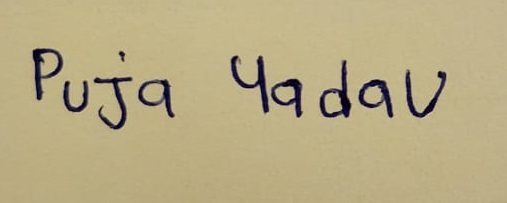 Puja Yadav